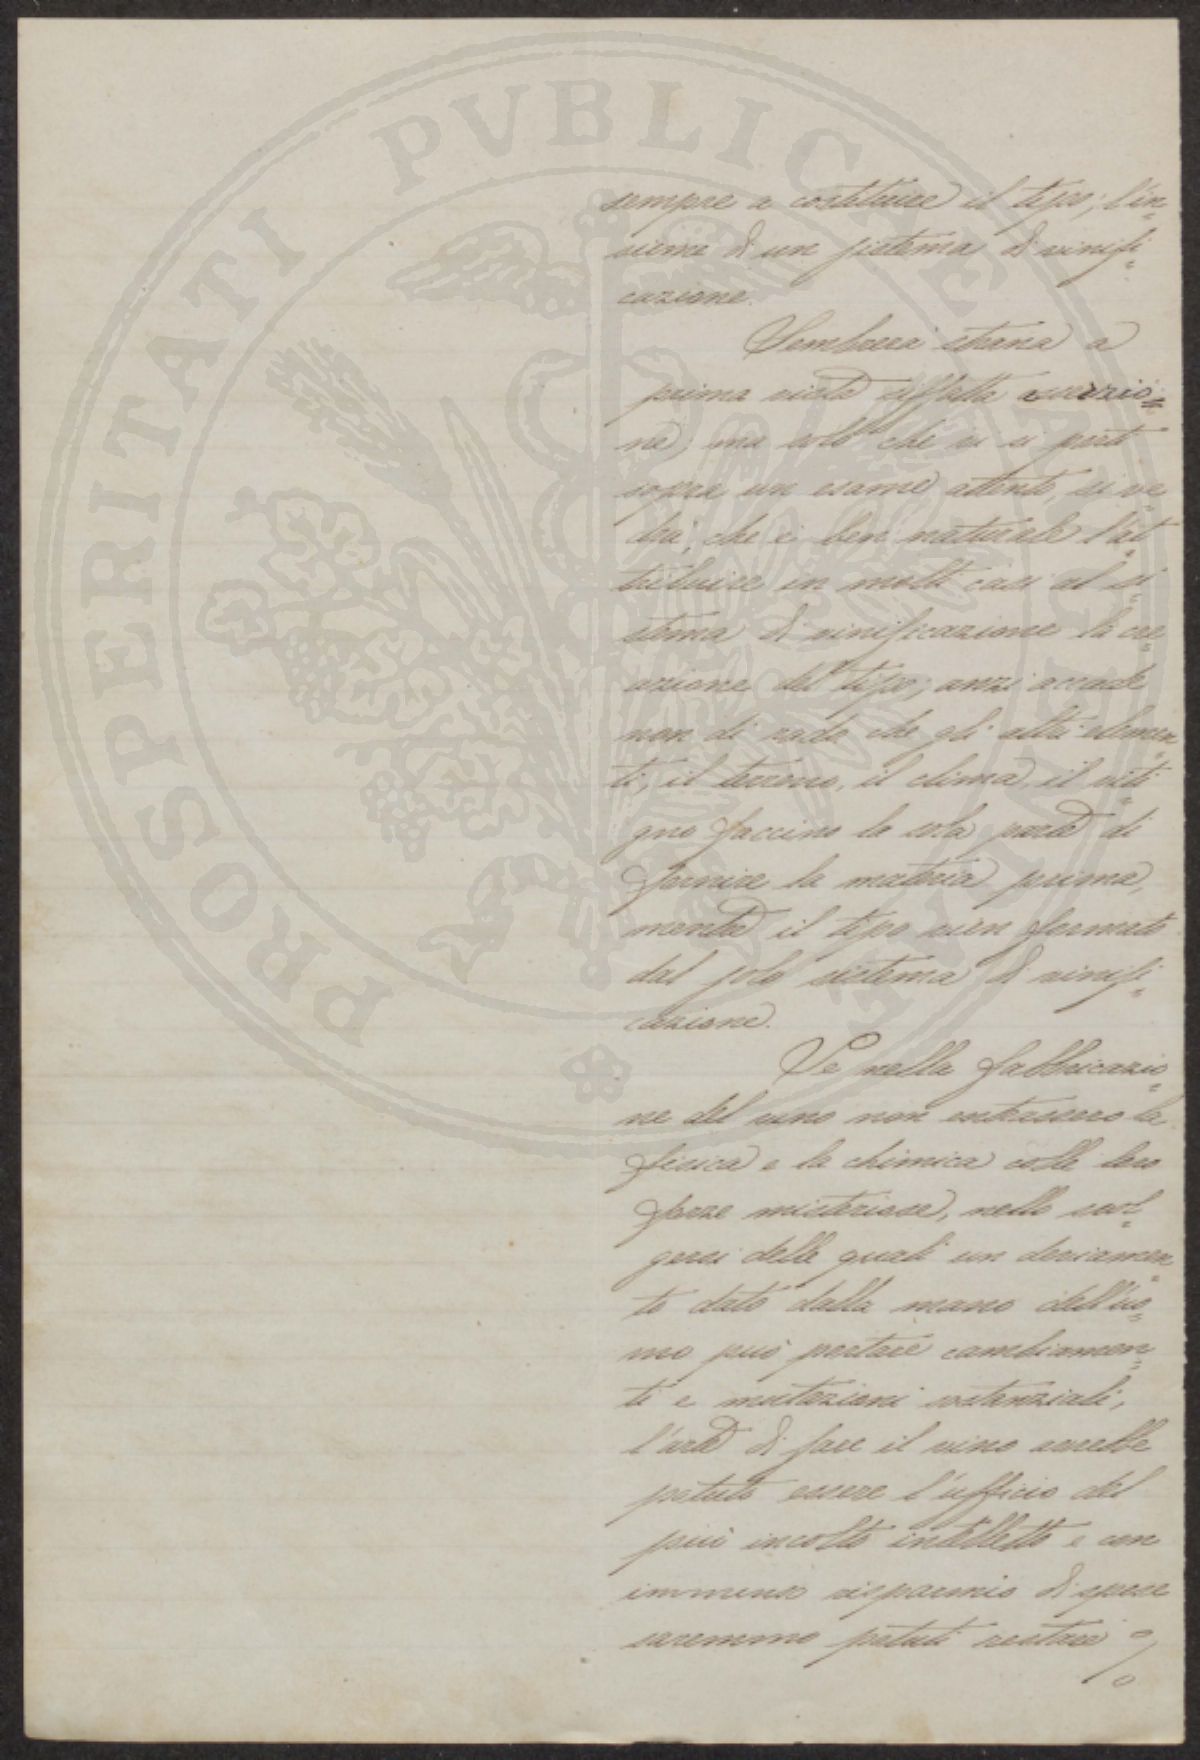 PROSPERITATI PVBLICAE AVGENDAE
sempre a costituire il tipo; l'in-
sieme di un sistema di vinifi-
cazione.
Sembrerà strana a
prima vista siffatta asserzio-
ne, ma solo che vi si porti
sopra un esame attento, si ve
drà, che è ben naturale l'at-
tribuire in molti casi al si-
stema di vinificazione la cre-
azione del tipo; anzi accade
non di rado che gli altri elemen
ti, il terreno, il clima, il viti-
gno facciano la sola parte di
fornire la materia prima,
mentre il tipo vien formato
dal solo sistema di vinifi-
cazione.
Se nella fabbricazio-
ne del vino non entrassero la
fisica e la chimica colle loro
forze misteriose, nello svol-
gersi delle quali un deviamen
to dato dalla mano dell'uo-
mo può portare cambiamen-
ti e mutazioni sostanziali,
l'arte di fare il vino avrebbe
potuto essere l'ufficio del
più incolto intelletto e con
immenso risparmio di spese
saremmo potuti restare